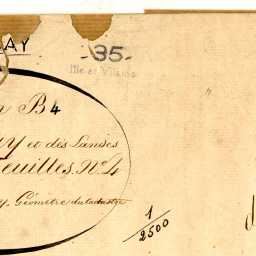 AY
35
Ille et Vilaine
n B4
y et des Landes
euilles, N.º 4
y, Géomètre du cadastre
1/2500
d